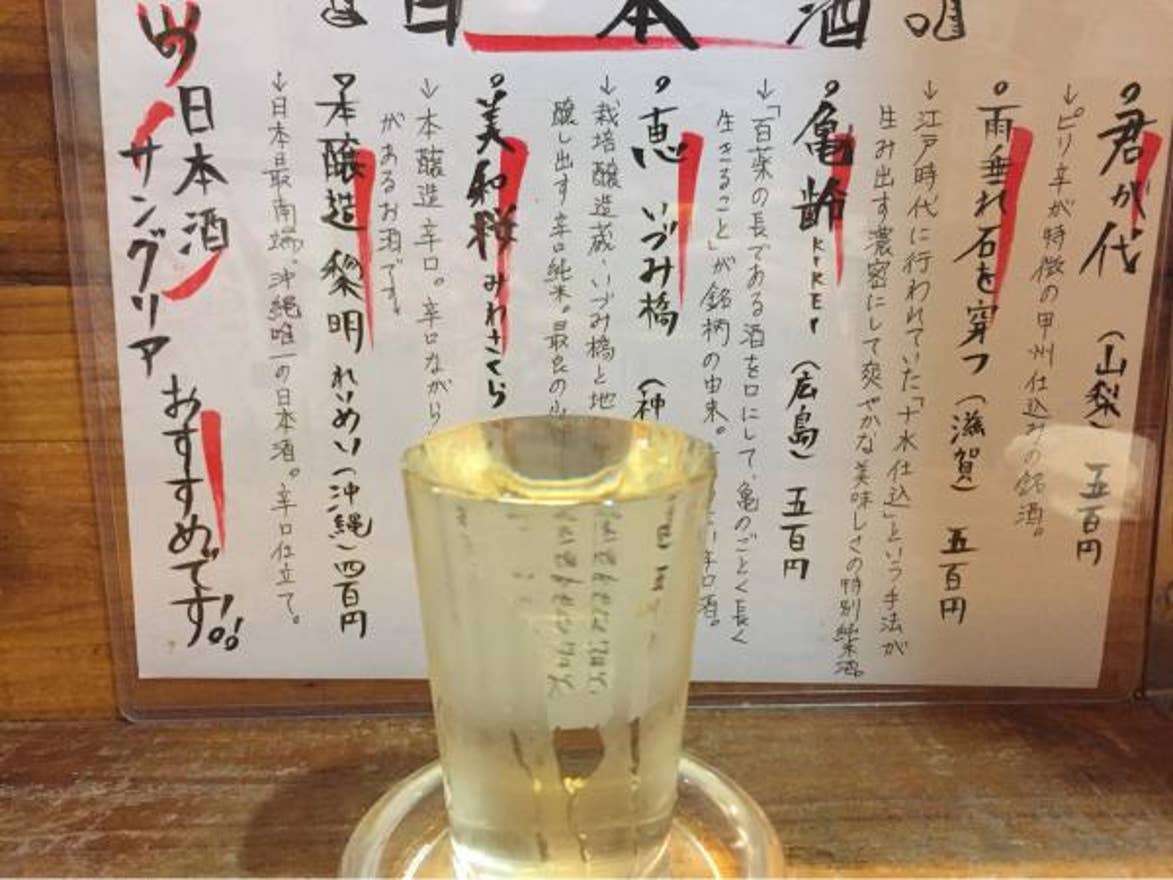 日本酒
君が代 (山梨) 五百円
↓ピリ辛が特徴の甲州仕込みの銘酒。
雨垂れ石を穿つ (滋賀) 五百円
↓江戸時代に行われていた「十水仕込」という手法が
生み出す濃密にして爽やかな美味しさの特別純米酒。
亀齢 KIREI (広島) 五百円
↓「百薬の長である酒を口にして、亀のごとく長く
生きること」が銘柄の由来。
辛口酒。
恵 いづみ橋 (神
↓栽培醸造蔵・いづみ橋と地
醸し出す辛口純米。最良の
美和桜 みわさくら
↓本醸造辛口。辛口ながら
があるお酒です。
本醸造 黎明 れいめい (沖縄) 四百円
↓日本最南端。沖縄唯一の日本酒。辛口仕立て。
日本酒
サングリア
おすすめです!!